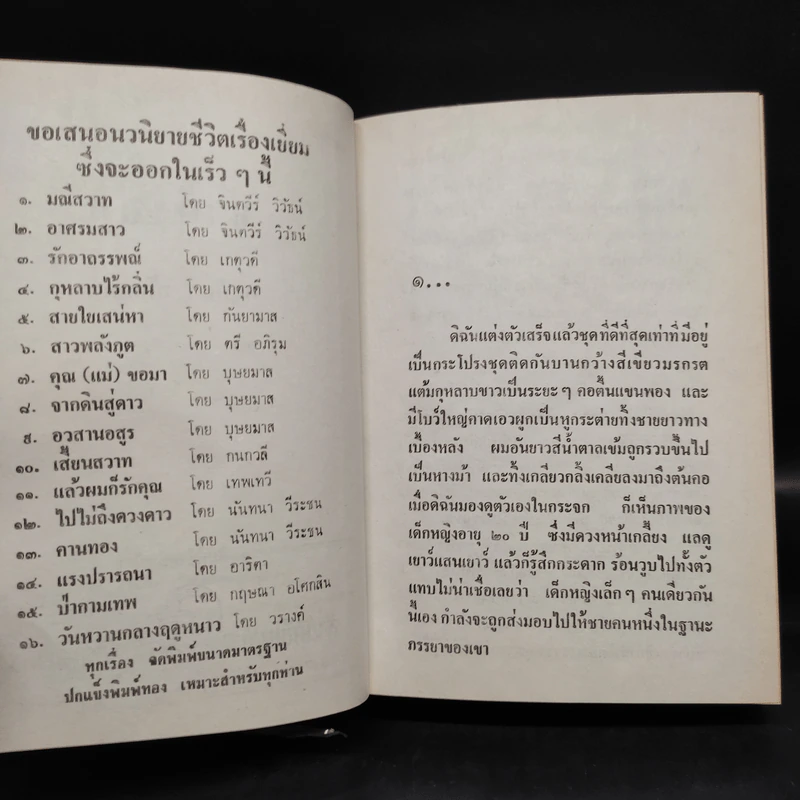 ขอเสนอนวนิยายชีวิตเรื่องเยี่ยม
ซึ่งจะออกในเร็ว ๆ นี้
๑. มณีสวาท โดย จินตวีร์ วิวัธน์
๒. อาศรมสาว โดย จินตวีร์ วิวัธน์
๓. รักอาถรรพณ์ โดย เกตุวดี
๔. กุหลาบไร้กลิ่น โดย เกตุวดี
๕. สายใยเสน่หา โดย กันยามาส
๖. สาวพลังภูต โดย ตรี อภิรุม
๗. คุณ (แม่) ขอมา โดย บุษยมาส
๘. จากดินสู่ดาว โดย บุษยมาส
๙. อวสานอสูร โดย บุษยมาส
๑๐. เสี้ยนสวาท โดย กนกวลี
๑๑. แล้วผมก็รักคุณ โดย เทพเทวี
๑๒. ไปไม่ถึงดวงดาว โดย นันทนา วีระชน
๑๓. คานทอง โดย นันทนา วีระชน
๑๔. แรงปรารถนา โดย อาริตา
๑๕. ป่ากามเทพ โดย กฤษณา อโศกสิน
๑๖. วันหวานกลางฤดูหนาว โดย วรางค์
ทุกเรื่อง จัดพิมพ์ขนาดมาตรฐาน
ปกแข็งพิมพ์ทอง เหมาะสำหรับทุกท่าน
๑...
ดิฉันแต่งตัวเสร็จแล้วชุดที่ดีที่สุดเท่าที่มีอยู่
เป็นกระโปรงชุดติดกันบานกว้างสีเขียวมรกต
แต้มกุหลาบขาวเป็นระยะๆ คอตื้นแขนพอง และ
มีโบว์ใหญ่คาดเอวผูกเป็นหูกระต่ายทิ้งชายยาวทาง
เบื้องหลัง ผมอันยาวสีน้ำตาลเข้มถูกรวบขึ้นไป
เป็นหางม้า และทิ้งเกลียวกลิ้งเคลียลงมาถึงต้นคอ
เมื่อดิฉันมองดูตัวเองในกระจก ก็เห็นภาพของ
เด็กหญิงอายุ ๒๐ ปี ซึ่งมีดวงหน้าเกลี้ยง แลดู
เยาว์แสนเยาว์ แล้วก็รู้สึกกระดาก ร้อนวูบไปทั้งตัว
แทบไม่น่าเชื่อเลยว่า เด็กหญิงเล็กๆ คนเดียวกัน
นี้เอง กำลังจะถูกส่งมอบไปให้ชายคนหนึ่งในฐานะ
ภรรยาของเขา